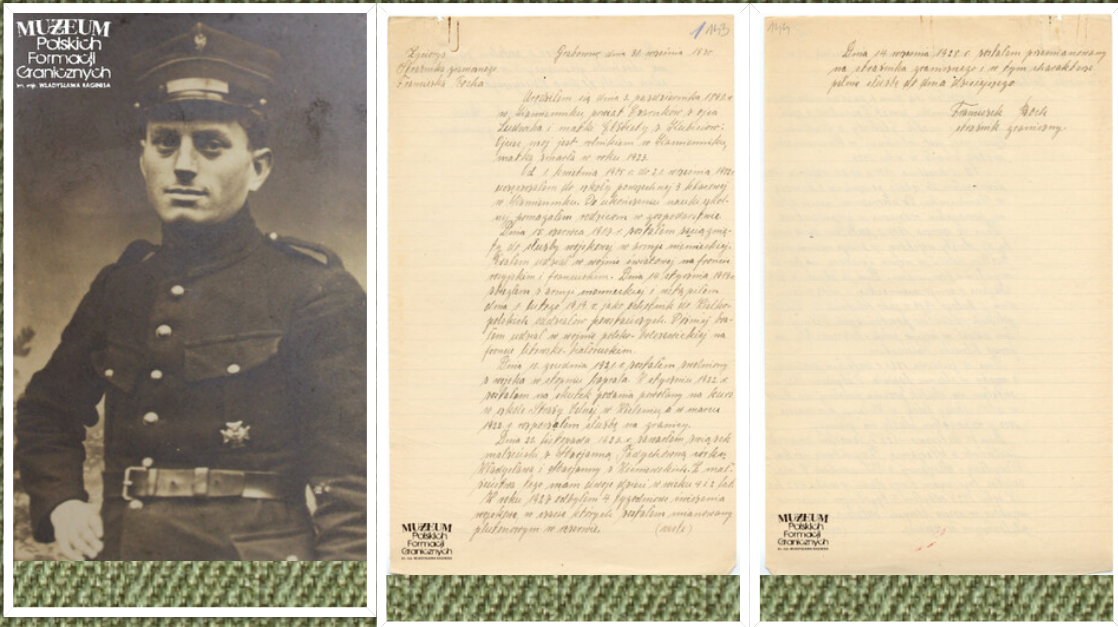 MUZEUM
Polskich
Formacji
Granicznych
im. mjr. WŁADYSŁAWA RAGINISA
143
Życiorys
Grabowo dnia września
strażnika granicznego
Franciszka Pocha
Urodziłem się dnia 2 października
w powiat z ojca
Ludwika i matki Elżbiety z
Ojciec mój jest rolnikiem w
matka zmarła w roku 1923.
Od 1 kwietnia do września
uczęszczałem do szkoły powszechnej 3 klasowej
w Po ukończeniu nauki szkol-
nej pomagałem rodzicom w gospodarstwie.
Dnia czerwca zostałem wciągnię-
ty do służby wojskowej w armji niemieckiej.
Brałem udział w wojnie światowej na froncie
rosyjskim i francuskim. Dnia 14 stycznia
zbiegłem z armji niemieckiej i wstąpiłem
dnia 1 lutego 1919 r. jako ochotnik do Wielko-
polskich oddziałów powstańczych. Później bra-
łem udział w wojnie polsko-bolszewickiej na
froncie litewsko-białoruskim.
Dnia grudnia 1921 r. zostałem zwolniony
z wojska w stopniu kaprala. W styczniu 1922 r.
zostałem na skutek podania powołany na kurs
w szkole Straży Celnej w a w marcu
1922 r. rozpocząłem służbę na granicy.
Dnia 22 listopada zawarłem związek
małżeński z Marjanną córką
Władysława i Marjanny z Z mał-
żeństwa tego mam dwoje dzieci w wieku 4 i 2 lat.
W roku 1927 odbyłem 4 tygodniowe ćwiczenia
wojskowe w czasie których zostałem mianowany
plutonowym w rezerwie. (verte)
MUZEUM
Polskich
Formacji
Granicznych
im. mjr. WŁADYSŁAWA RAGINISA
144
Dnia 14 września 1928 r. zostałem przemianowany
na strażnika granicznego i w tym charakterze
pełnię służbę do dnia dzisiejszego.
Franciszek Poch
strażnik graniczny.
MUZEUM
Polskich
Formacji
Granicznych
im. mjr. WŁADYSŁAWA RAGINISA